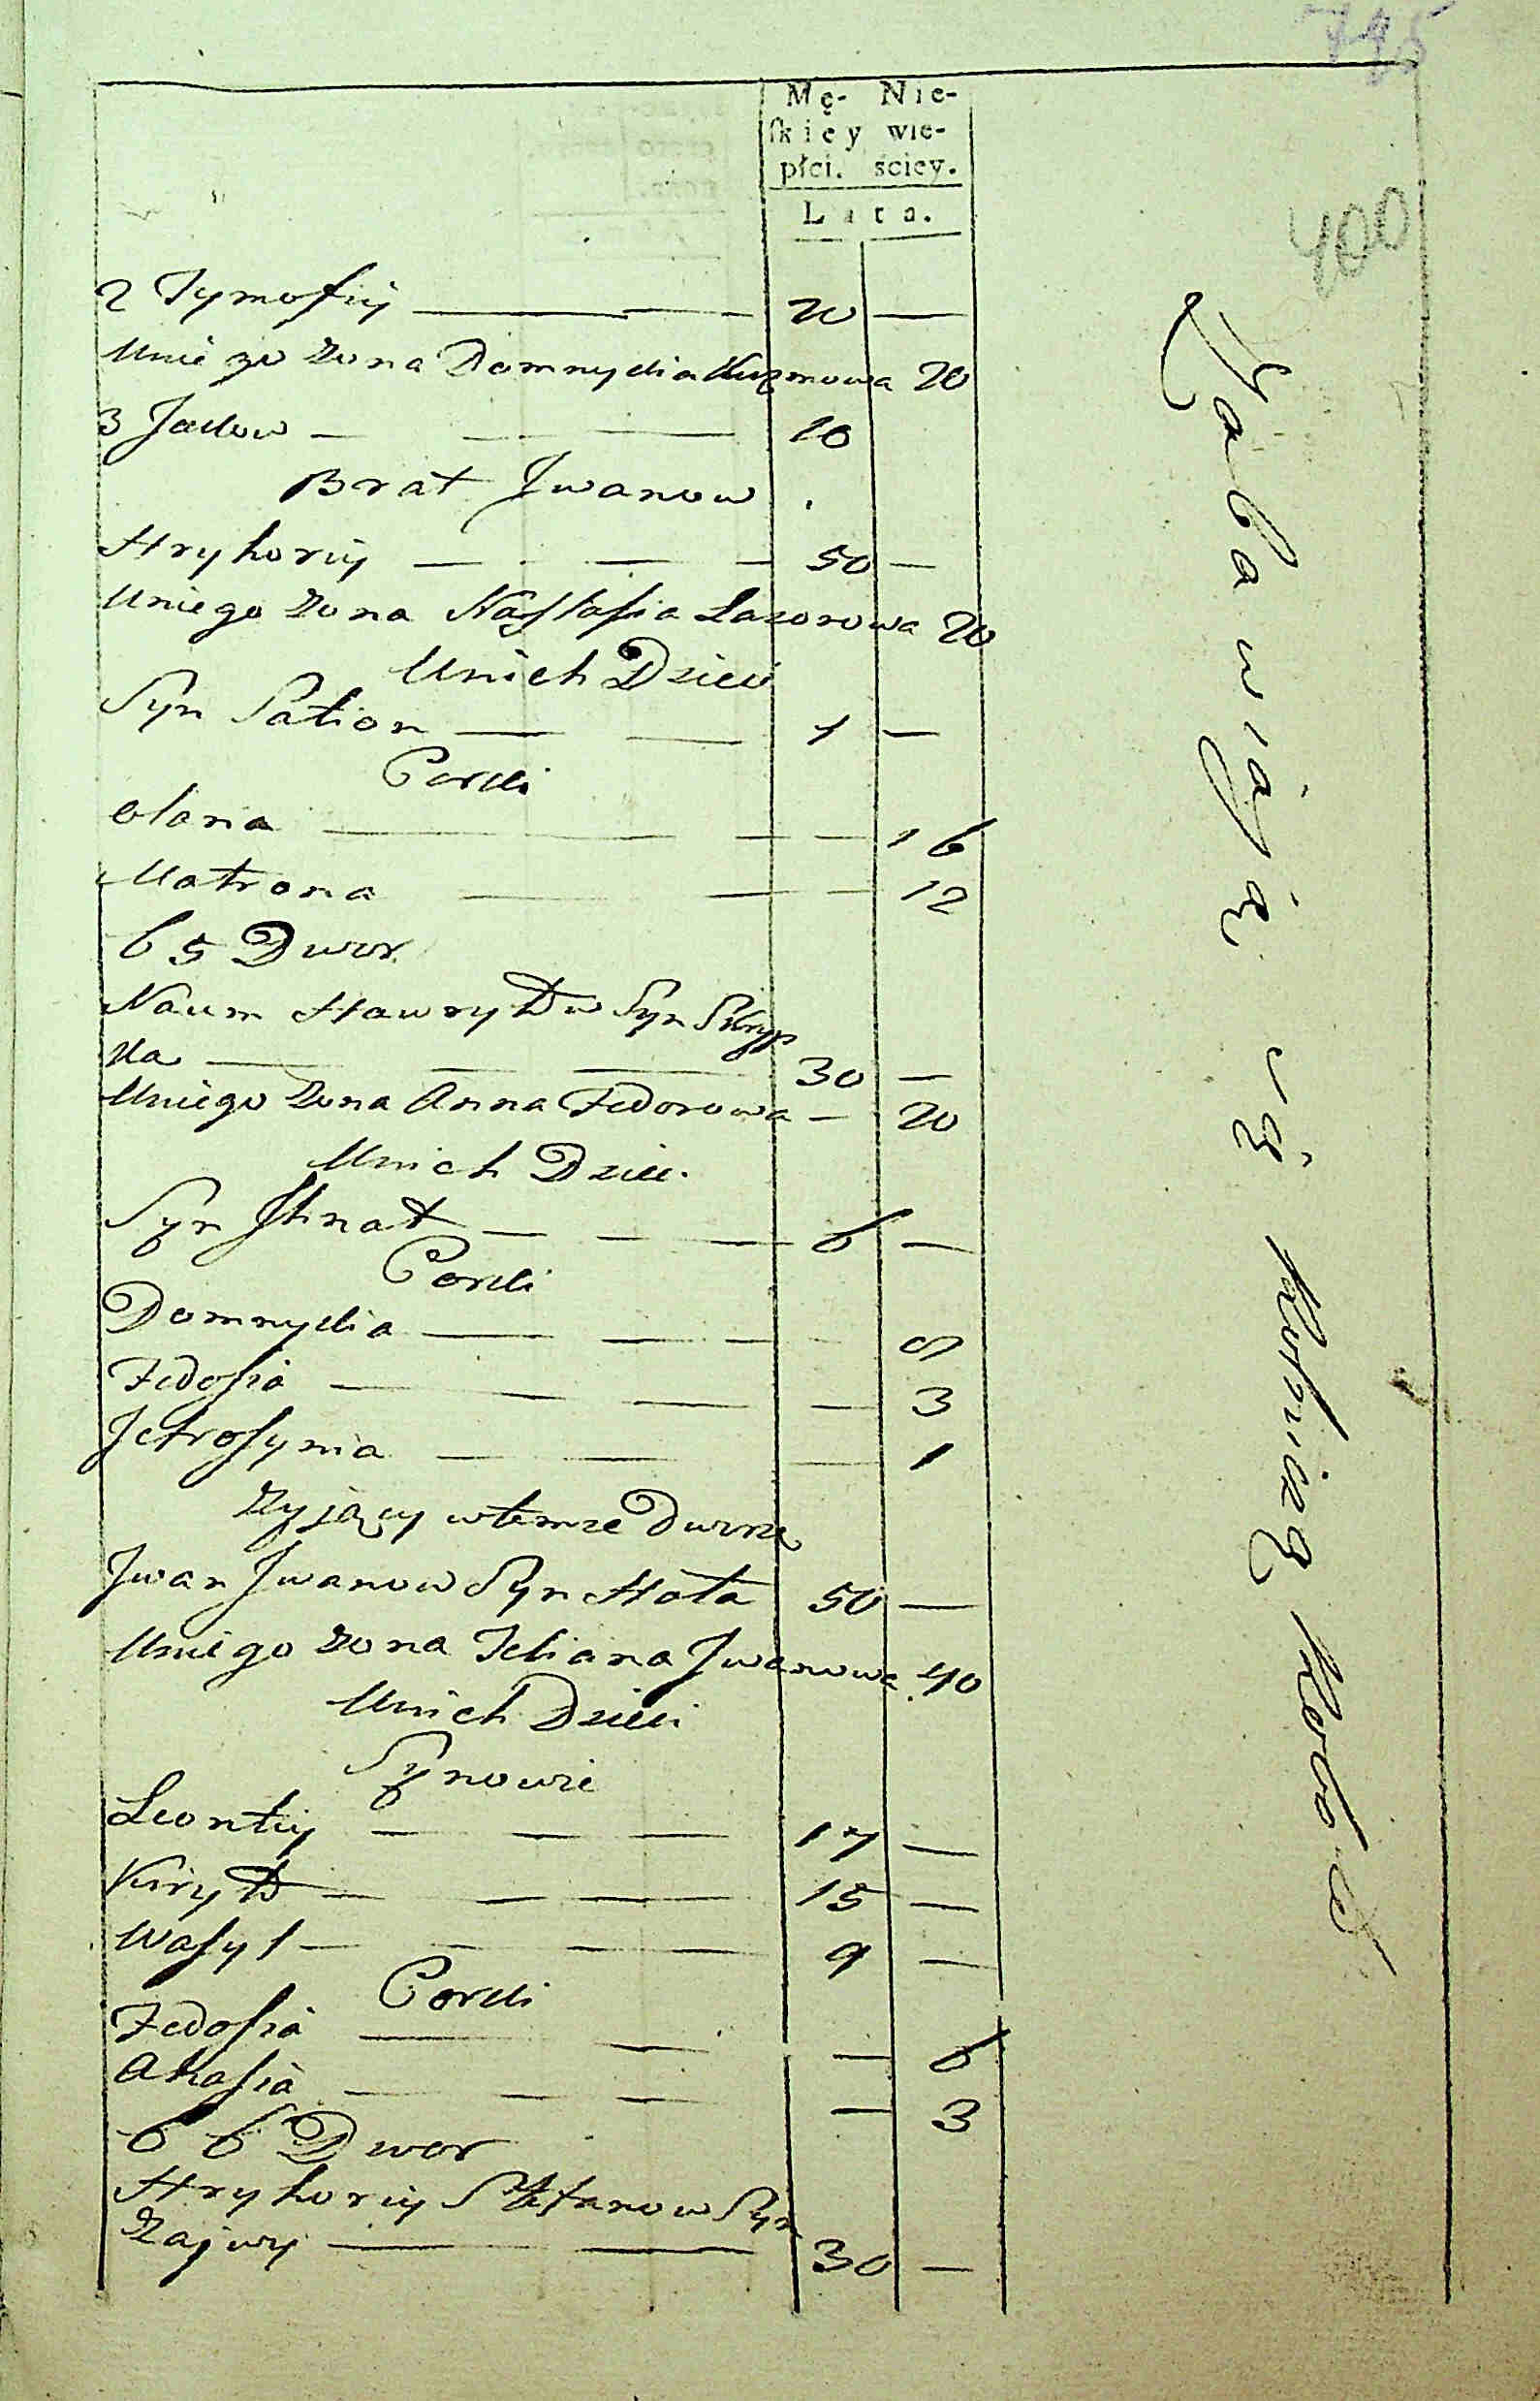 400
Mę- Nie-
ſkiey wie-
płci. ściey.
Lata.
2 Tymofiy — — 20 —
Uniego Zona Domnykia Kuzmowa 20
3 Jakow — — — 10
Brat Jwanow
Hryhoriy — — — 50 —
Uniego Zona Nastasia Lazorowa 20
Unich Dzieci
Syn — — 1 —
Corki
olana — — — 16
Matrona — — — 12
65 Dwor
Naum Hawryłow Syn Skryp
ka — — — 30 —
Uniego Zona Anna Fedorowa — 20
Unich Dzieci
Syn Jhnat — — — 6 —
Corki
Domnykia — — — —
Fedosia — — — — 3
Jefrosynia — — — — 1
Zyjący wtemze Dworze
Jwan Jwanow Syn Hota 50 —
Uniego Zona Jeliana Jwanowa 40
Unich Dzieci
Synowie
Leontiy — — — 17 —
Kiryło — — — — 15 —
Wasyl — — — — 9 —
Corki
Fedosia — — — 6
Akasia — — — — 3
66 Dwor
Hryhoriy Stefanow Syn
Zajwy — — 30 —
Zabawiają się Rolnictwem